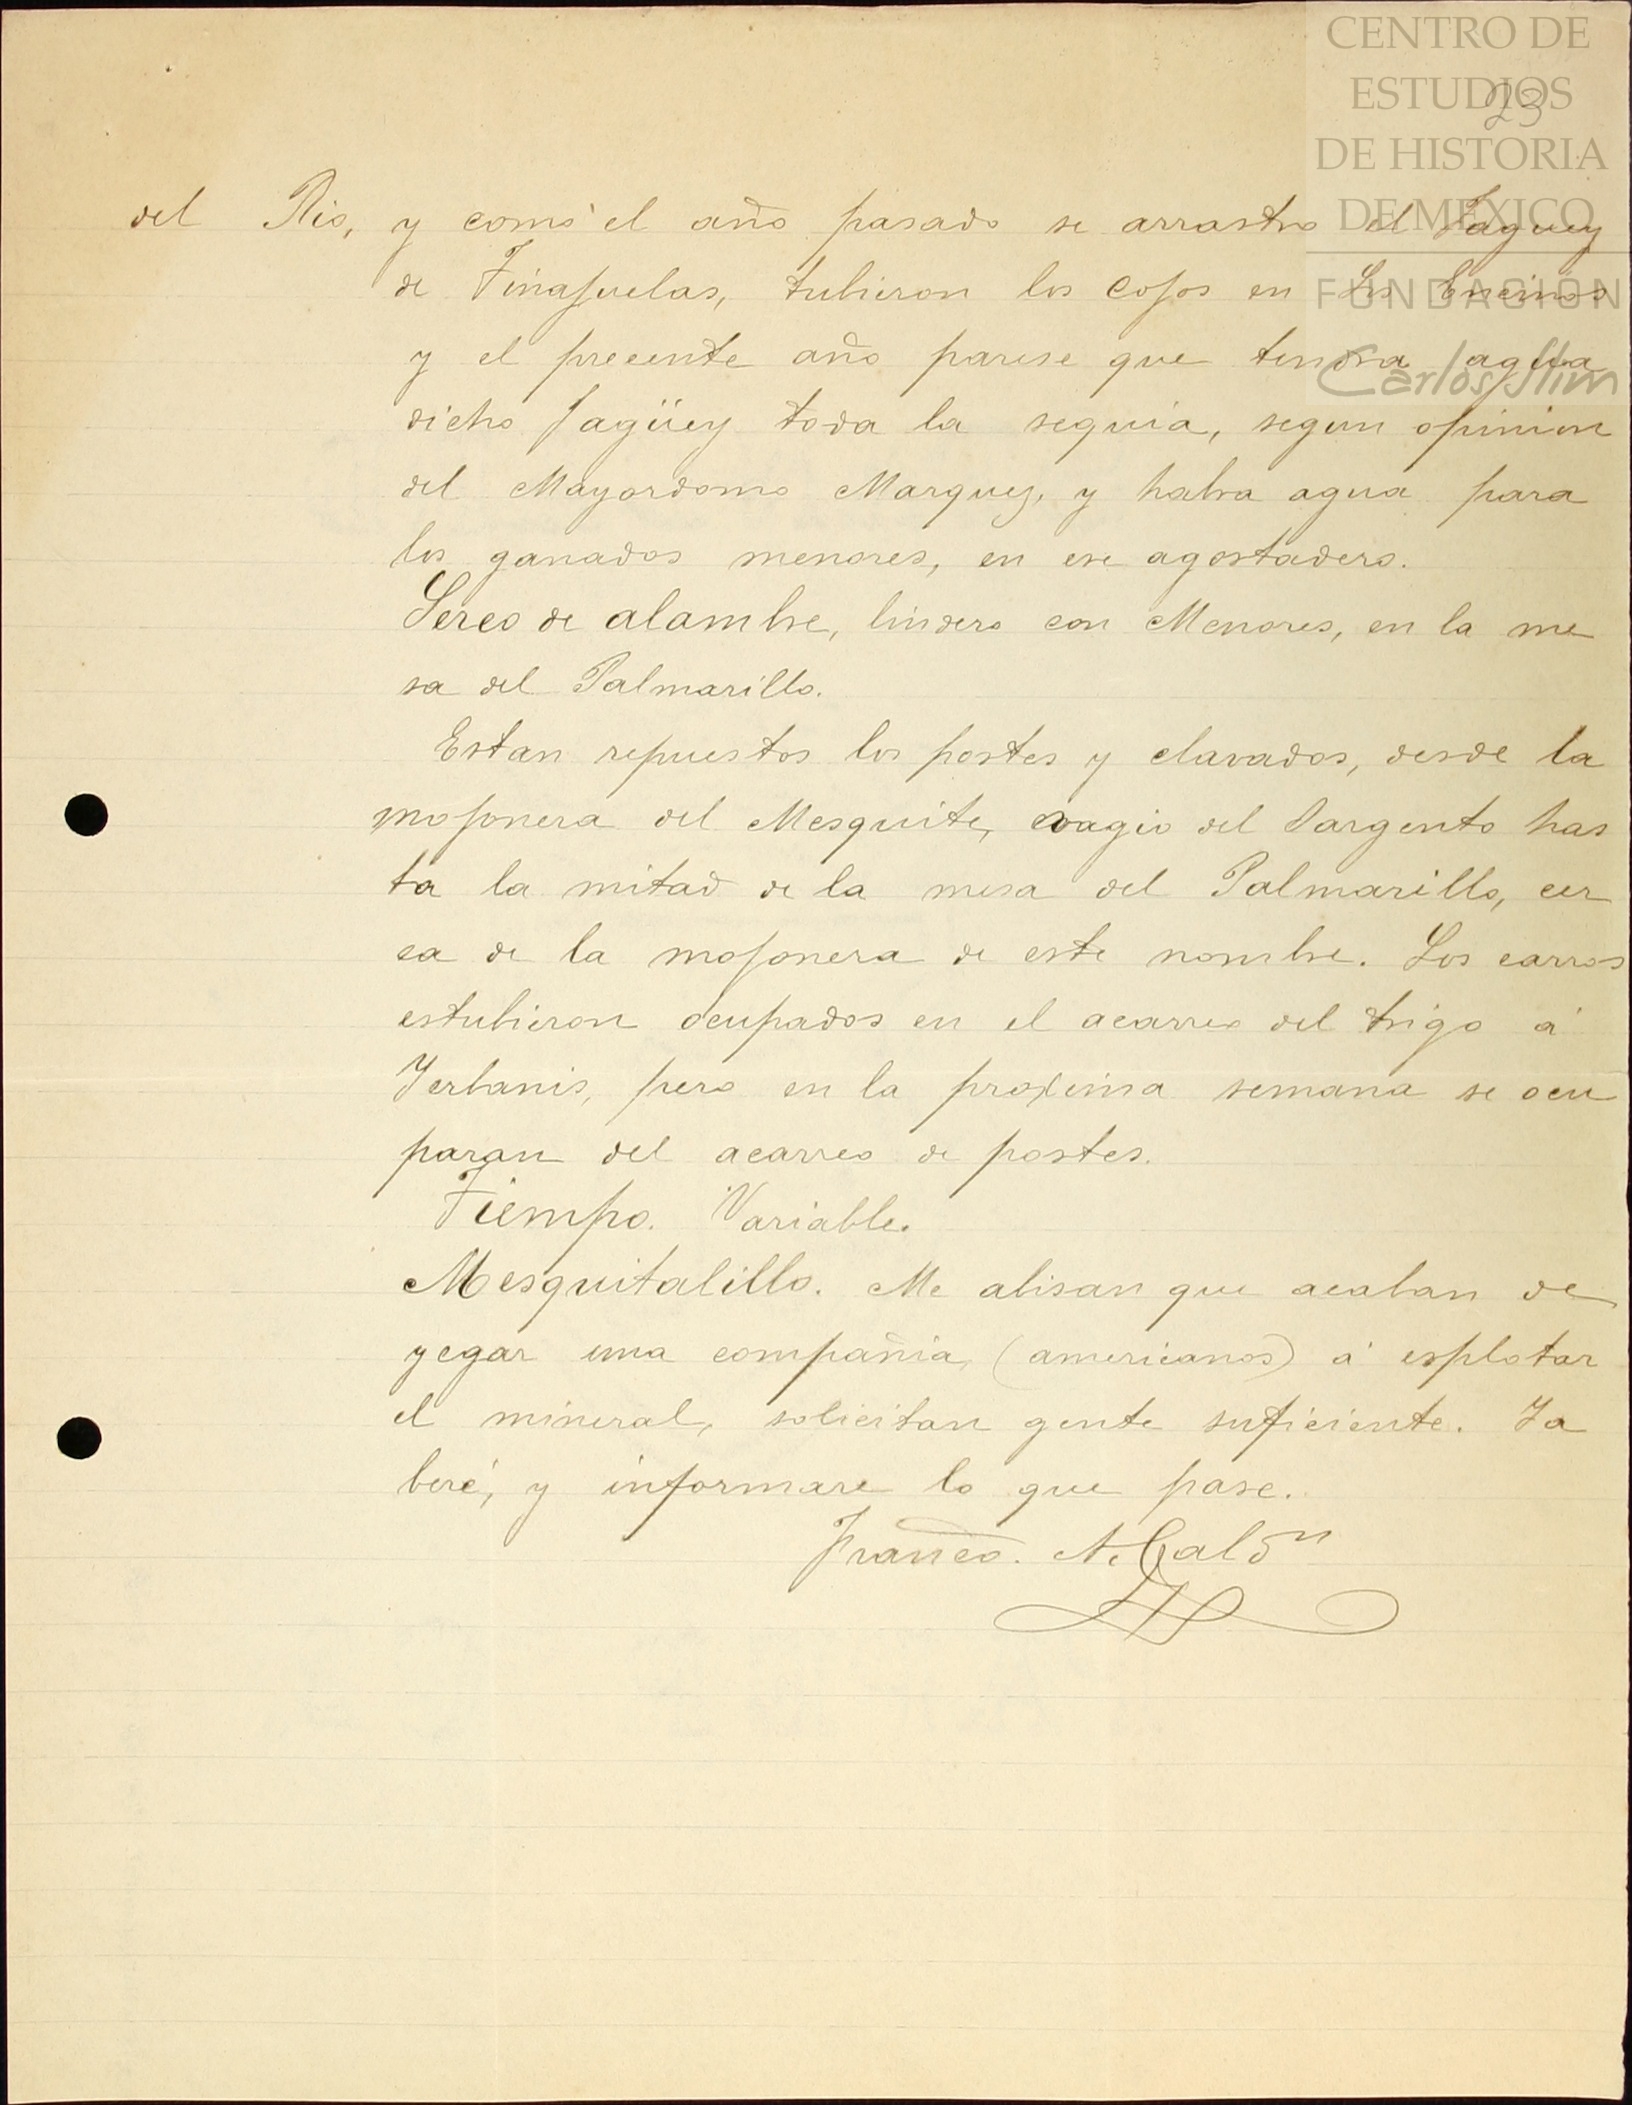 CENTRO DE
ESTUDIOS
23
DE HISTORIA
DE MEXICO
FUNDACION
Carlos Slim
del Rio, y como el año pasado se arrastro el Jaguey
de Tinajuelas, tubieron los cojos en los Encinos
y el precente año parese que tendra agua
dicho Jagüey toda la sequia, segun opinion
del Mayordomo Marquez, y habra agua para
los ganados menores, en ese agostadero.
Serco de alambre, lindero con Menores, en la me
sa del Palmarillo.
Estan repuestos los postes y clavados, desde la
mojonera del Mesquite, vagio del Sargento has
ta la mitad de la mesa del Palmarillo, cer
ca de la mojonera de este nombre. Los carros
estubieron ocupados en el acarreo del trigo á
Yerbanis, pero en la proxima semana se ocu
paran del acarreo de postes.
Tiempo. Variable.
Mesquitalillo. Me abisan que acaban de
yegar una compañia, (americanos) á esplotar
el mineral, solicitan gente suficiente. Ya
beré, y informare lo que pase.
Franco. A. Caldn